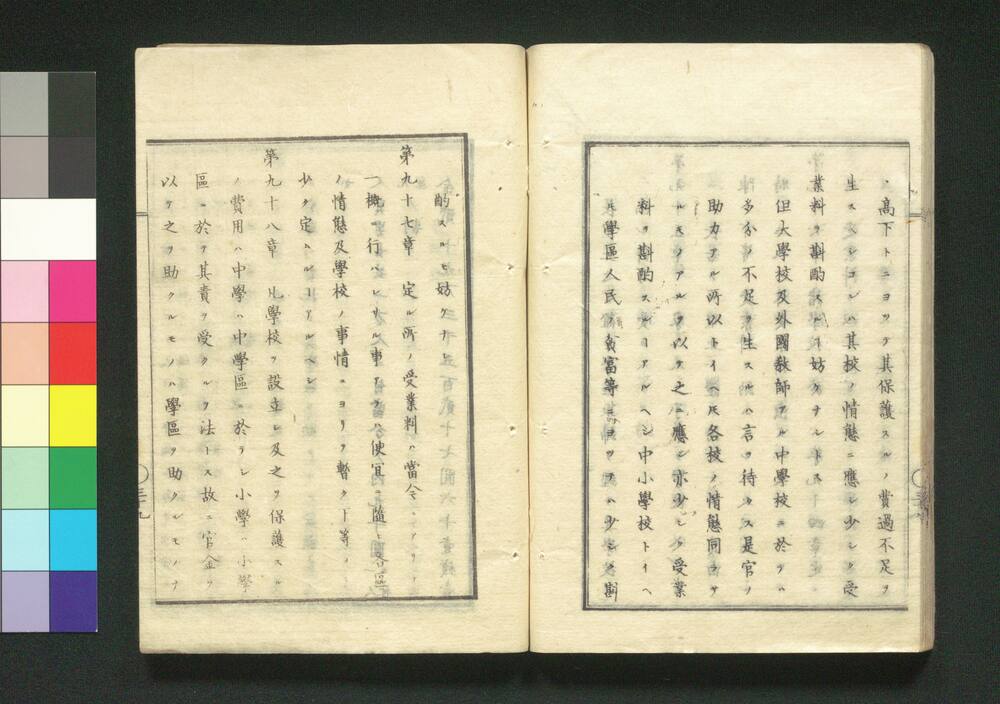 高下トニヨツテ其保護スルノ費過不足ヲ
生スヘシコレハ其校ノ情態ニ應シ少シク受
業料ヲ斟酌スルヿ妨ケナシトス
但大學校及外國敎師アル中學校ニ於テハ
多分ノ不足ヲ生スルハ言ヲ待タス是官ノ
助力アル所以トイヘ𪜈各校ノ情態同シカラ
サルモノアルヲ以テ之ニ應シ亦少シク受業
料ヲ斟酌スルヿアルヘシ中小學校トイヘ
𪜈學區人民ノ貧富等ニヨツテハ少シク斟
酌スルモ妨ケナシ
第九十七章 定ル所ノ受業料ハ當今ニアリテ
一槪ニ行ハレサル事アラハ便宜ニ隨ヒ其區
ノ情態及學校ノ事情ニヨリテ暫ク下等ノ
少ク定ムルヿアルヘシ
第九十八章 凡學校ヲ設立シ及之ヲ保護スル
ノ費用ハ中學ハ中學區ニ於テシ小學ハ小學
區ニ於テ其責ヲ受クルヲ法トス故ニ官金ヲ
以テ之ヲ助クルモノハ學區ヲ助クルモノナ